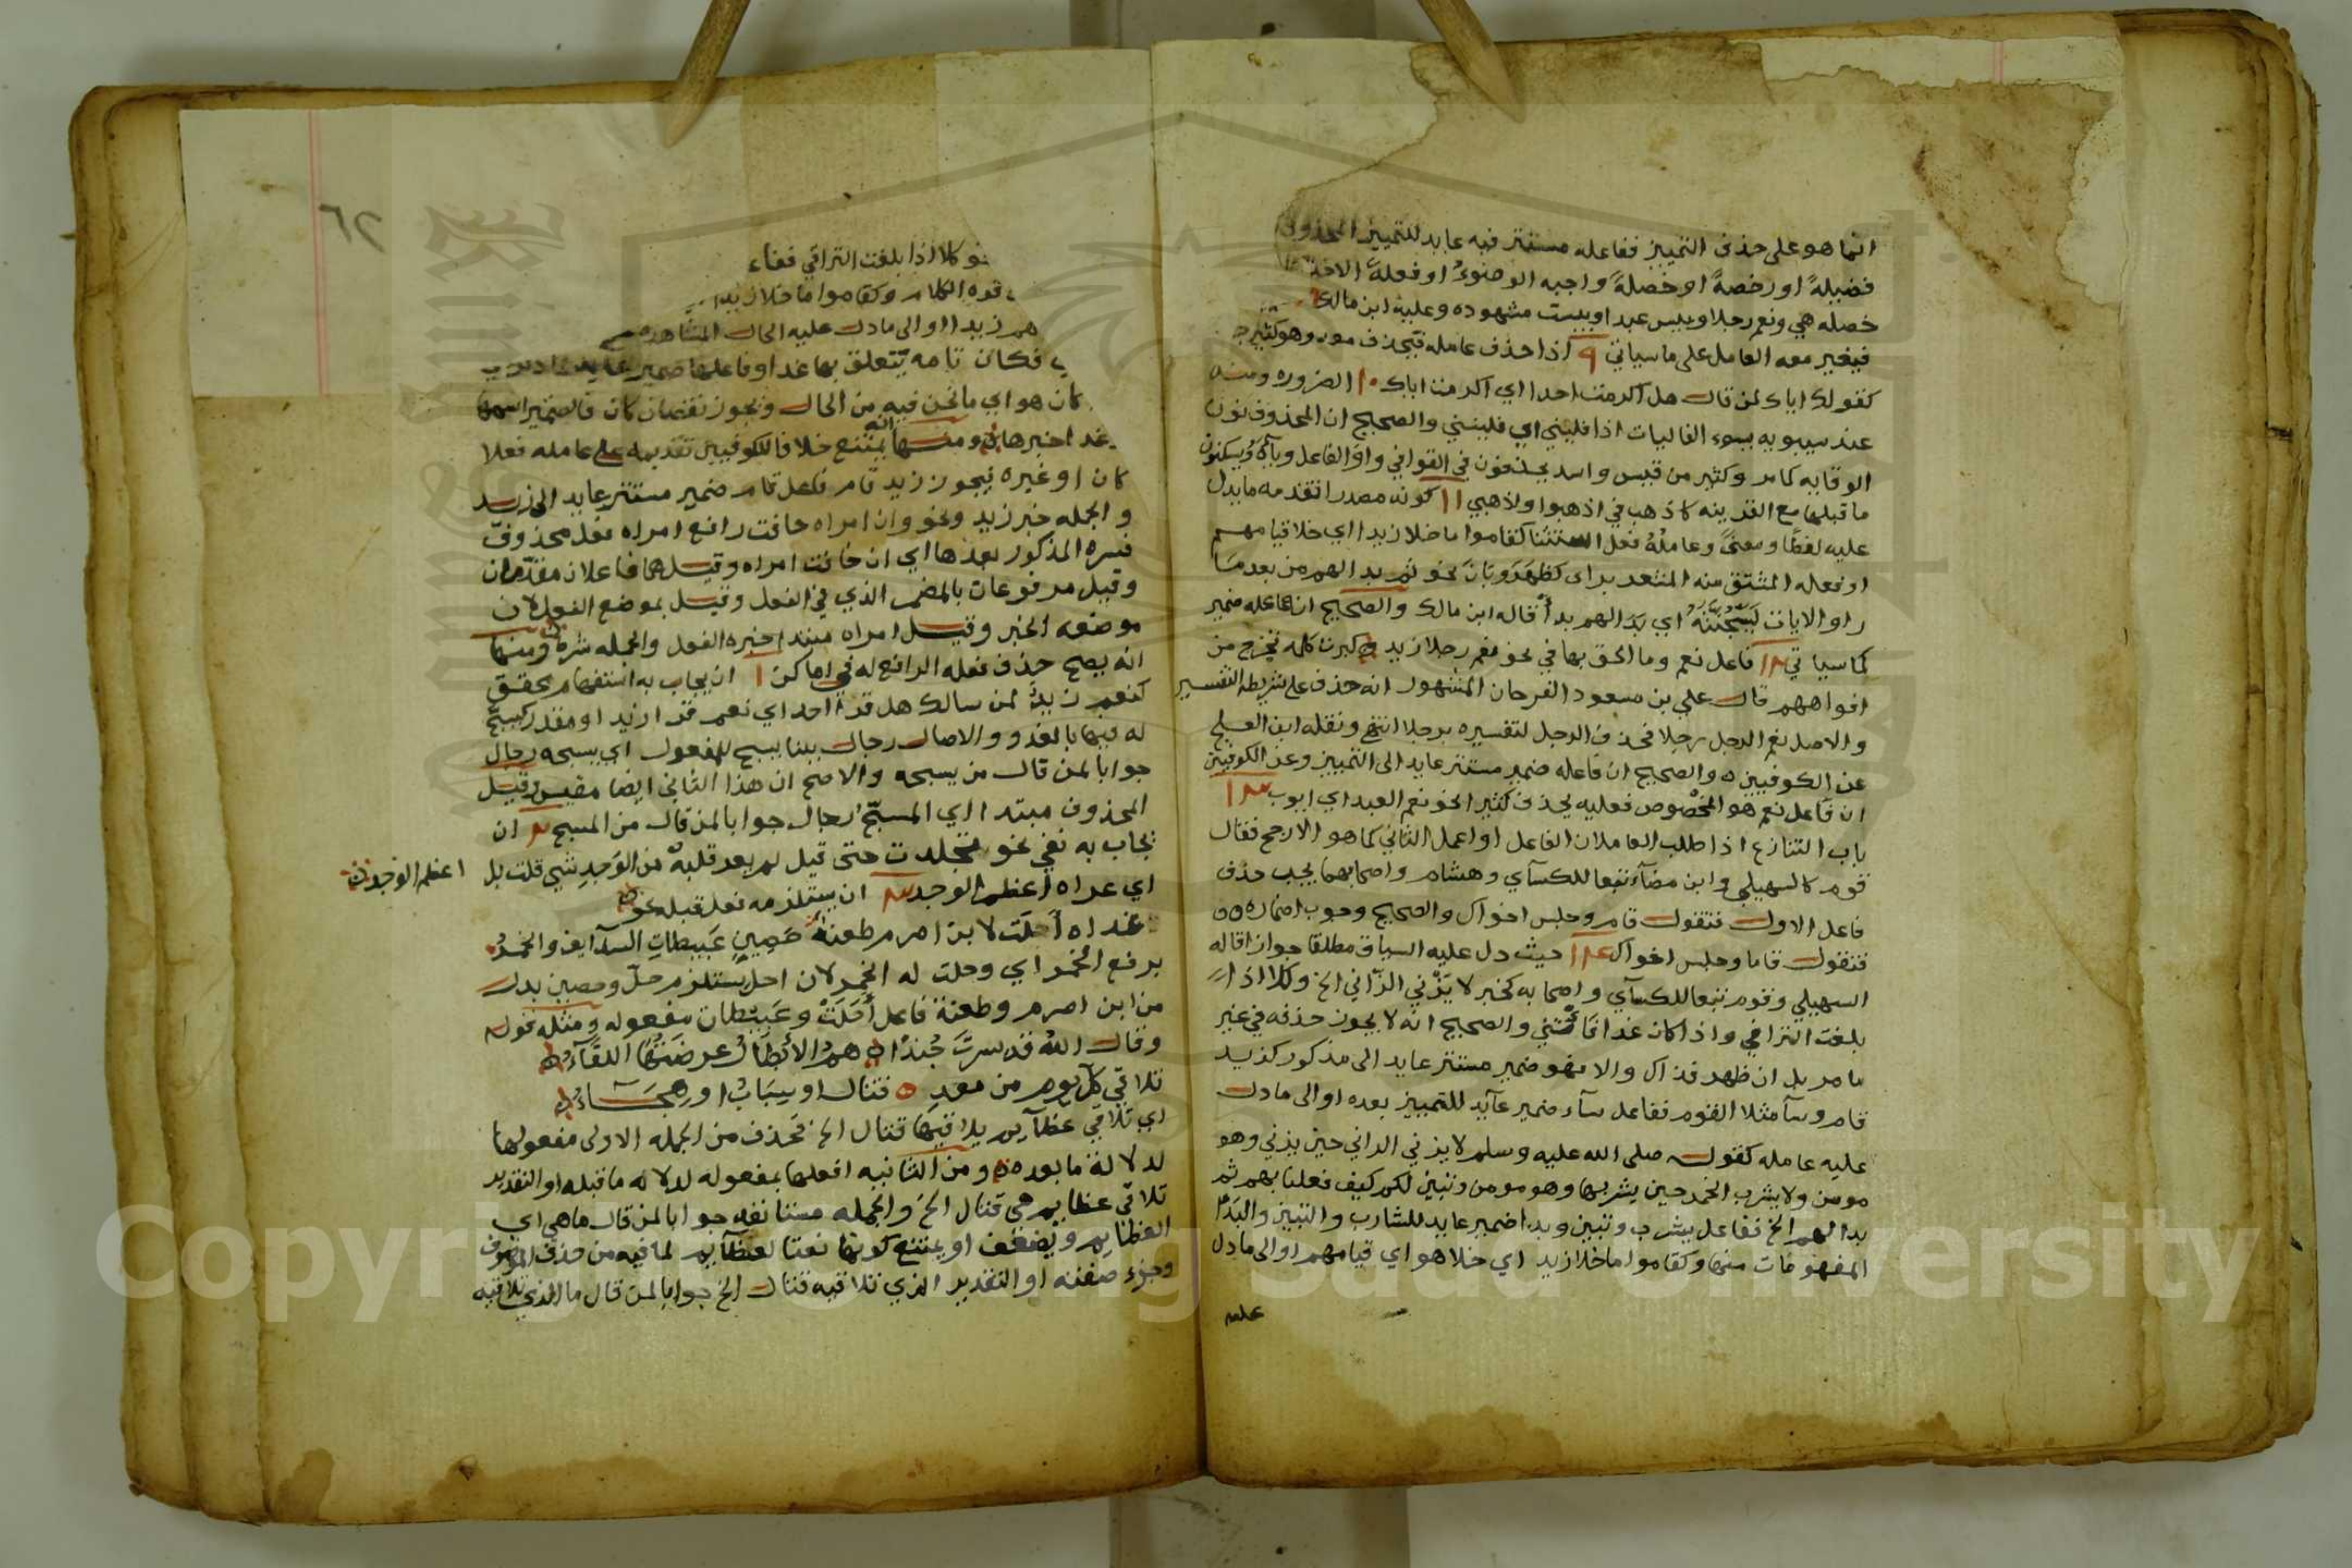 انما هو على حذف التمييز ففاعله مستتر فيه عايد للتمييز المحذوف
فضيلةً او رخصةً او خصلةً واجبه الوضوءُ او فعلةً
خصله هي ونعم رجلا وبيس عبد او بيست مشهوده وعليه ابن مالك
فيغير معه العامل على ما سياتي ٩ اذا حذف عامله فيحذف معه وهو كثير
كقولك اياك لمن قال هل اكرمت احدا اي اكرمت اياك ١٠ الضروره ومنه
عند سيبويه يسوء الفاليات اذا فليني اي فلينني والصحيح ان المحذوف نون
الوقايه كما مر وكثير من قيس واسد يحذفون في القوافي واو الفاعل وياه ويسكنون
ما قبلها مع القرينه كاذهب في اذهبوا ولاذهبي ١١ كونه مصدرا تقدمه ما يدل
عليه لفظًا ومعنىً وعاملُهُ فعل استثنا كقاموا ما خلا زيدا اي خلا قيامهم
او فعله المشتق منه المتعد براى كظهر وبان نحو ثم بدا لهم من بعد ما
راو الايات ليسجننه اي بدا لهم بداٌ قاله ابن مالك والصحيح ان فاعله ضمير
كما سياتي ١٢ فاعل نعم وما الحق بها في نحو نعم رجلا زيد و كبرت كلمه تخرج من
افواههم قال علي بن مسعود الفرحان المشهور انه حذف على شريطه التفسير
والاصل نعم الرجل رجلا فحذف الرجل لتفسيره برجلا انتهى ونقله ابن العلج
عن الكوفيين ه والصحيح ان فاعله ضمير مستتر عايد الى التمييز وعن الكوفيين
ان فاعل نعم هو المخصوص فعليه يحذف كثيرا نحو نعم العبد اي ايوب ١٣
باب التنازع اذا طلب العاملان الفاعل او اعمل الثاني كما هو الارجح فقال
قوم كالسهيلي وابن مضآء تبعا للكسآي وهشام واصحابهما يجب حذف
فاعل الاول فتقول قام وجلس اخواك والصحيح وجوب اضماره
فتقول قاما وجلس اخواك ١٤ حيث دل عليه السياق مطلقا جوازا قاله
السهيلي وقوم تبعا للكسآي واصحابه كخبر لا يزني الزاني الخ وكلا اذا
بلغت التراقي واذا كان غدا فاتني والصحيح انه لا يجوز حذفه في غير
ما مر بل ان ظهر فذاك والا فهو ضمير مستتر عايد الى مذكور كزيد
قام وسآ مثلا القوم ففاعل سآء ضمير عآيد للتمييز بعده او الى ما دل
عليه عامله كقوله صلى الله عليه وسلم لا يزني الزاني حين يزني وهو
مومن ولا يشرب الخمر حين يشربها وهو مومن وتبين لكم كيف فعلنا بهم ثم
بدا لهم الخ ففاعل يشرب وتبين وبدا ضمير عايد للشارب والتبين والبدا
المفهومات منها وكقاموا ما خلا زيد اي خلا هو اي قيامهم او الى ما دل
عليه
٦٢
نحو كلا اذا بلغت التراقي
قوه الكلام وكقاموا ما خلا زيدا
هم زيدا او الى ما دل عليه الحال المشاهده
فكان تامه يتعلق بها غدا وفاعلها ضمير عايد
كان هو اي ما نحن فيه من الحال ونجوز نقصان كان فالضمير اسمها
غدا خبرها ومنها انه يمتنع خلافا للكوفيين تقديمه على عامله فعلا
كان او غيره فيجوز زيد قام فاعل قام ضمير مستتر عايد الى زيد
والجمله خبر زيد ونحو وان امراه خافت رافع امراه فعل محذوف
فسره المذكور بعدها اي ان خافت امراه وقيل هما فاعلان مقدمان
وقيل مرفوعات بالمضمر الذي في الفعل وقيل بموضع الفعل لان
موضعه الخبر وقيل امراه مبتدا خبره الفعل والجمله شرط ومنها
انه يصح حذف فعله الرافع له في اماكن ١ ان يجاب به استفهام محقق
كنعم زيدٌ لمن سالك هل قرا احد اي نعم قرا زيد او مقدر كيسبح
له فيها بالغدو والاصال رجال ببنا يسبح للمفعول اي يسبحه رجال
جوابا لمن قال من يسبحه والاصح ان هذا الثاني ايضا مقيس وقيل
المحذوف مبتدا اي المسبّح رجال جوابا لمن قال من المسبح ٢ ان
يجاب به نفي نحو تجلدت حتى قيل لم يعر قلبهُ من الوَجدِ شي قلت بل
اعظم الوجد
اي عراه اعظم الوجد ٣ ان يستلزمه فعل قبله نحو
غداه أحلت لابن اصرم طعنةٌ حصين عبيطات السدآيف والخمرُ
برفع الخمر اي وحلت له الخمر لان احل يستلزم حلّ وحصين بدل
من ابن اصرم وطعنة فاعل أحلت وعبيطات مفعوله ومثله قوله
وقال اللهُ قد يسرتُ جُندًا هم الأنصار عرضتها اللقآءُ
تلاقي كل يوم من معد ه قتال او سباب او هجآء
اي تلاقي عظآيم يلاقيها قتال الخ فحذف من الجمله الاولى مفعولها
لدلالة ما بعده ومن الثانيه افعلها بمفعوله لدلاله ما قبله او التقدير
تلاقي عظايم هي قتال الخ والجمله مستانفه جوابا لمن قال ما هي اي
العظايم ويضعف او يمتنع كونها نعتا لعظآيم لما فيه من حذف الموصوف
وجزء صفته او التقدير الذي تلاقيه قتال الخ جوابا لمن قال ما الذي تلاقيه
Copyright © King Saud University